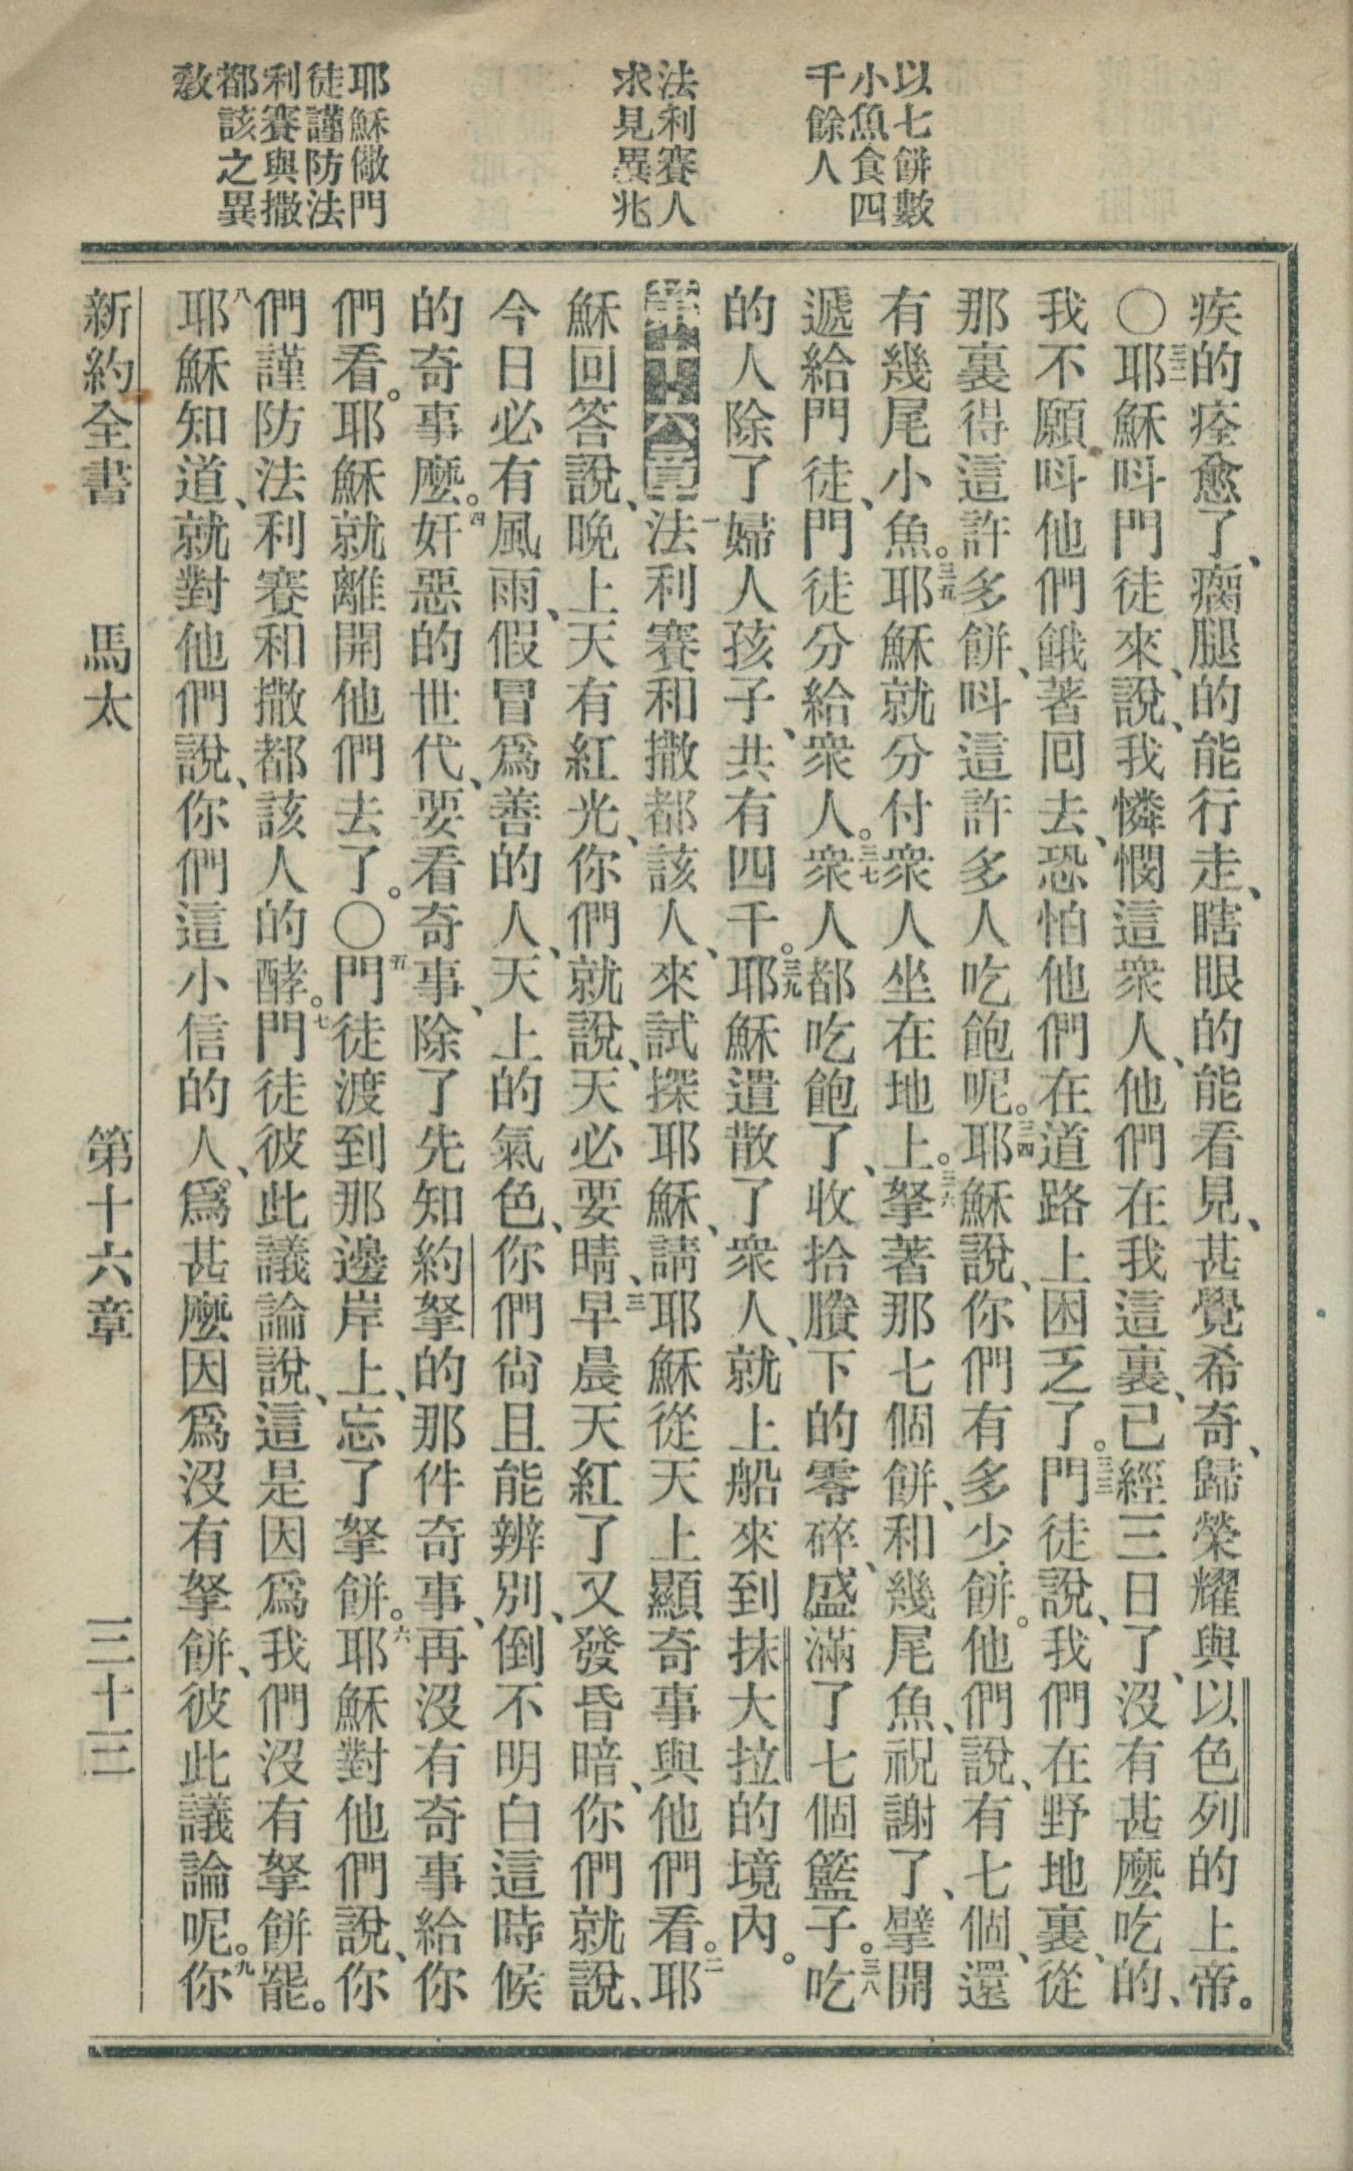 以七餅數
小魚食四
千餘人
法利賽人
求見異兆
耶穌儆門
徒謹防法
利賽與撒
都該之異
教
疾的痊愈了、瘸腿的能行走、瞎眼的能看見、甚覺希奇、歸榮耀與以色列的上帝。
〇三二耶穌呌門徒來、說、我憐憫這衆人、他們在我這裏、已經三日了、沒有甚麼吃的、
我不願呌他們餓著回去、恐怕他們在道路上困乏了。三三門徒說、我們在野地裏、從
那裏得這許多餅、呌這許多人吃飽呢。三四耶穌說、你們有多少餅。他們說、有七個、還
有幾尾小魚。三五耶穌就分付衆人坐在地上。三六拏著那七個餅、和幾尾魚、祝謝了、擘開
遞給門徒、門徒分給衆人。三七衆人都吃飽了、收拾賸下的零碎、盛滿了七個籃子。三八吃
的人除了婦人孩子、共有四千。三九耶穌遣散了衆人、就上船來到抹大拉的境內。
第十六章一法利賽和撒都該人、來試探耶穌、請耶穌從天上顯奇事與他們看。二耶
穌回答說、晚上天有紅光、你們就說、天必要晴、三早晨天紅了又發昏暗、你們就說、
今日必有風雨、假冒爲善的人、天上的氣色、你們尙且能辨別、倒不明白這時候
的奇事麼。四奸惡的世代、要看奇事、除了先知約拏的那件奇事、再沒有奇事給你
們看。耶穌就離開他們去了。〇五門徒渡到那邊岸上、忘了拏餅。六耶穌對他們說、你
們謹防法利賽和撒都該人的酵。七門徒彼此議論說、這是因爲我們沒有拏餅罷。
八耶穌知道、就對他們說、你們這小信的人、爲甚麼因爲沒有拏餅、彼此議論呢。九你
新約全書　馬太　第十六章　三十三